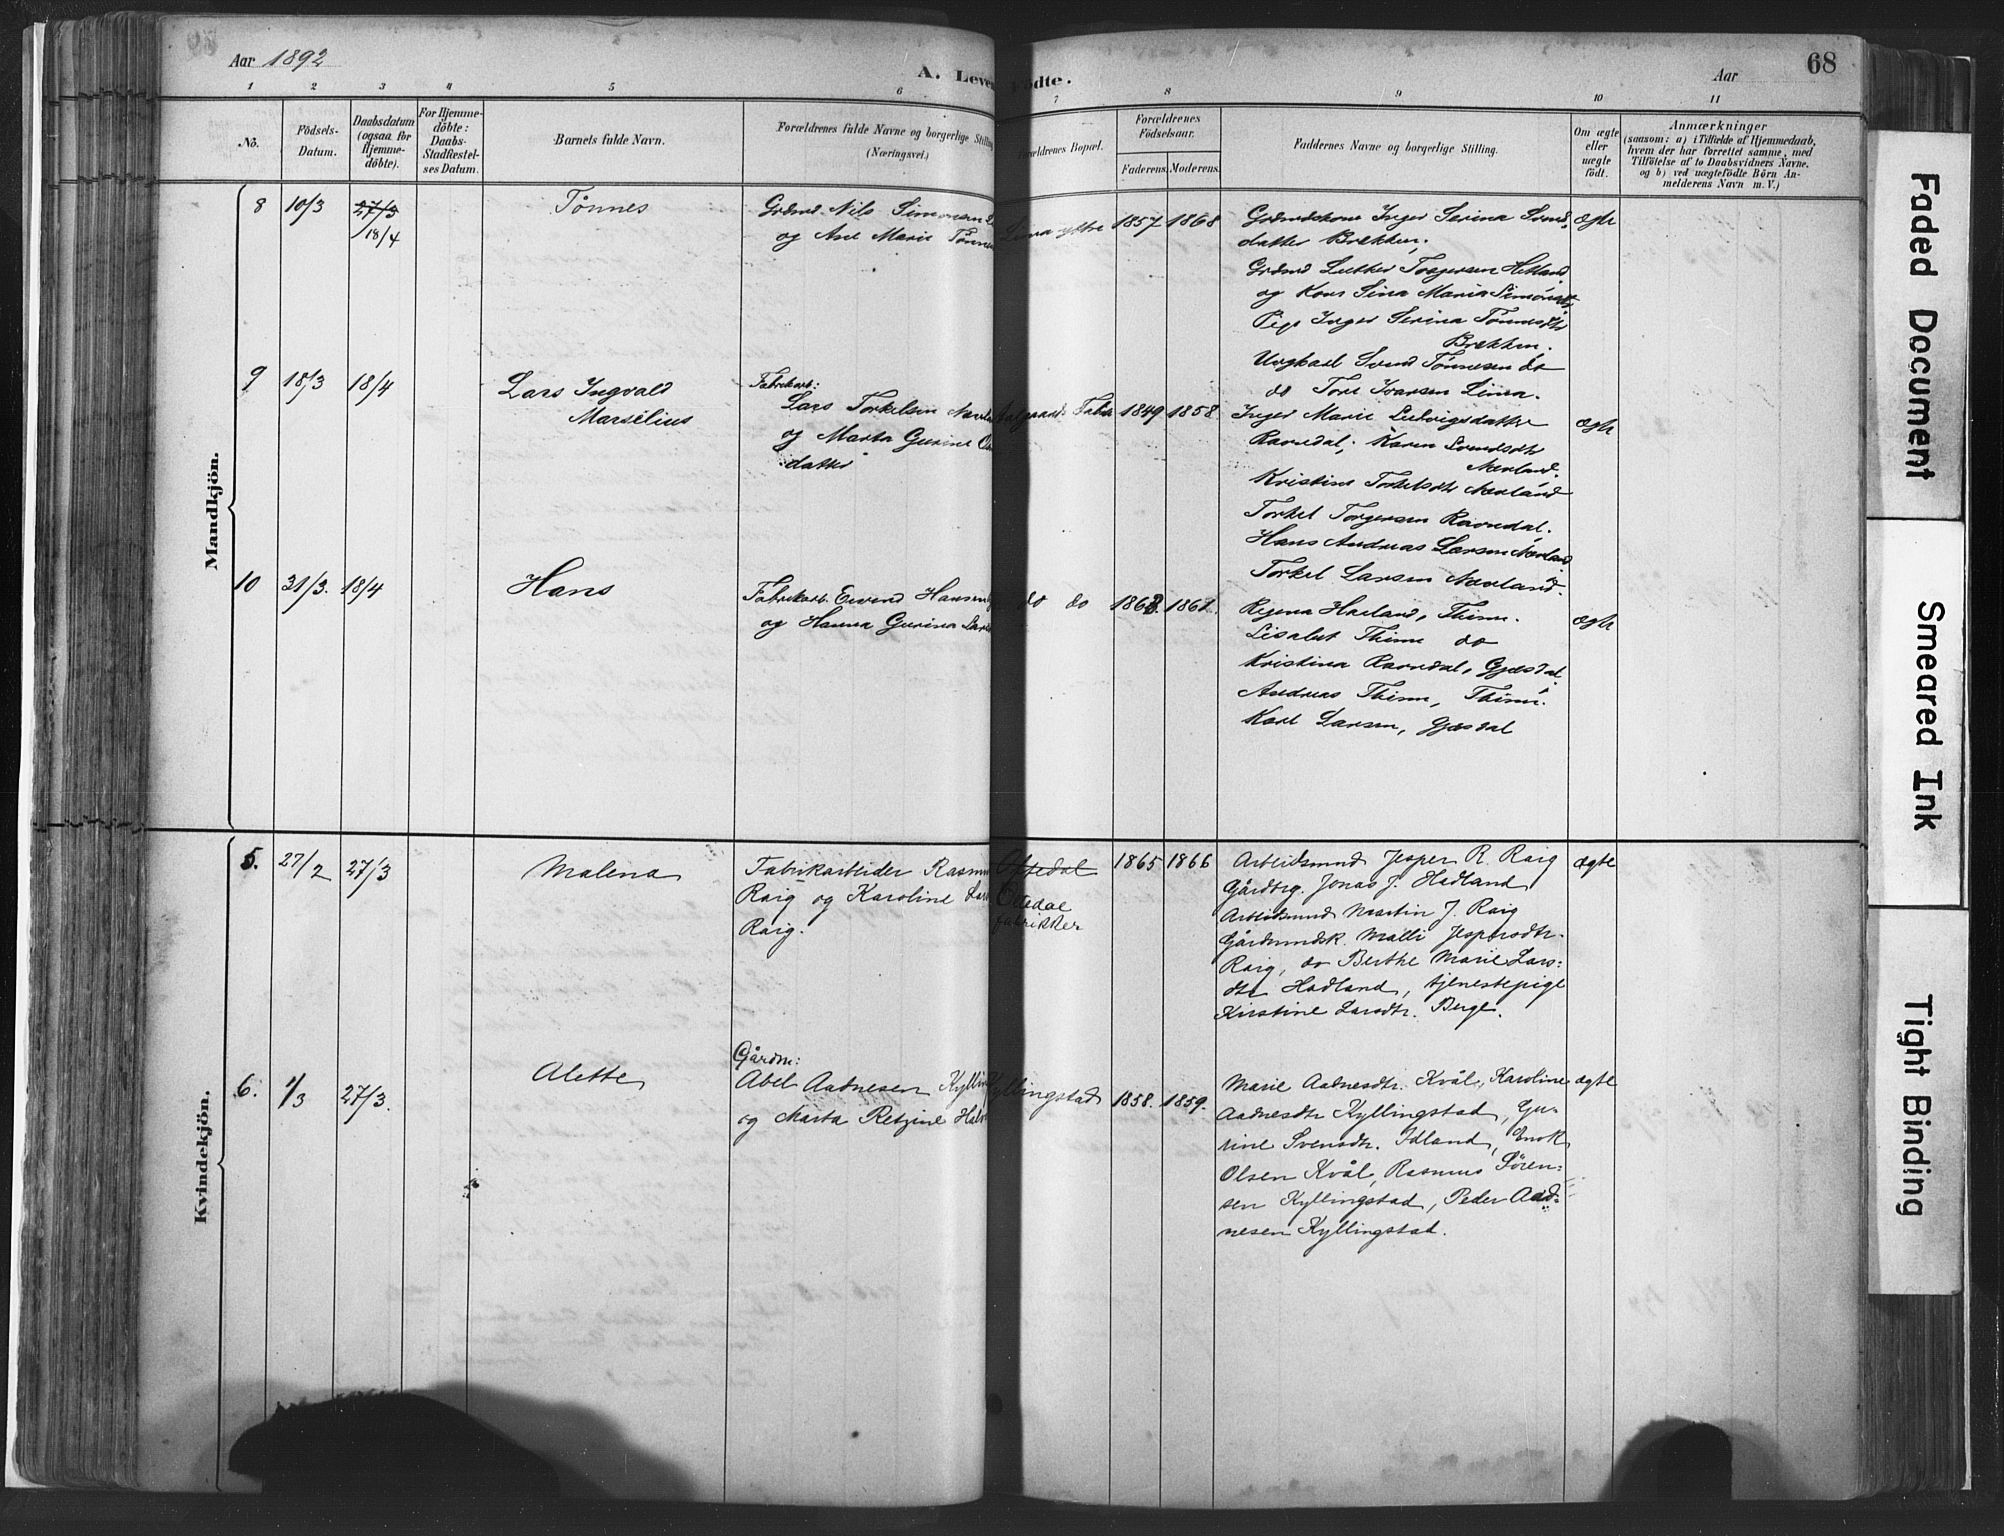 Aar 1892
A. Leve
ödte.
Aar
68
1 2 3 4 5 6 7 8 9 10 11
No.
Födsels-
Datum.
Daabsdatum
(ogsaa for
Hjemme-
döbte).
For Hjemme-
döbte:
Daabs-
Stadfæstel-
ses Datum.
Barnets fulde Navn.
Forældrenes fulde Navne og borgerlige Stilling
(Næringsvei.)
Forældrenes Bopæl.
Forældrenes
Födselsaar.
Faderens. Moderens.
Faddernes Navne og borgerlige Stilling.
Om ægte
eller
uægte
födt.
Anmærkninger
(saasom: a) i Tilfælde af Hjemmedaab,
hvem der har forrettet samme, med
Tilföielse af to Daabsvidners Navne.
og b) ved uægtefödte Börn An-
melderens Navn m. V.)
Mandkjön.
8 10/3 27/3
18/4
Tönnes
Grdmd. Nils Simonsen
og Ane Marie Tönnes
Lima yttre 1857 1868
Grdmdskone Inger Serina Svend
datter Brekken,
Grdmd Luther Torgersen Hetland
og Kone Sina Maria Simonsdt
Pige Inger Serina Tönnesdtr
Brekken.
Ungkarl Svend Tönnesen do
do Tore Ivarsen Lima.
ægte
9 18/3 18/4
Lars Ingvald
Marselius
Fabrikarb:
Lars Torkelsen Nærla
og Marta Gurine
datter
Aalgaards Fabr 1849 1858
Inger Marie Ludvigsdatter
Ravndal, Karen Svendsdtr
Nærland.
Kristine Torkelsdtr Nærland
Torkel Torgersen Ravndal.
Hans Andreas Larsen Nærland
Torkel Larsen Nærland.
ægte
10 31/3. 18/4
Hans
Fabrikarb. Eivind Hansen
og Hanna Gurina Lars
do do 1863. 1867.
Regina Haeland, Thime.
Lisabet Thime do
Kristina Ravndal, Gjæsdal
Andreas Thime, Thime.
Karl Larsen, Gjæsdal
ægte
Kvindekjön.
5. 27/2 27/3
Malena
Fabrikarbeider Rasm
Raig og Karoline Lar
Raig.
Oftedal
Oltedal
fabrikker
1865 1866
Arbeidsmnd Jesper R. Raig
Gårdbrg. Jonas J. Hadland
Arbeidsmnd Martin J. Raig
Gårdmndsk. Malli Jespersdtr.
Raig, do Berthe Marie Lars:
dtr Hadland, tjenestepige
Kirstine Larsdtr. Berge.
ægte
6. 1/3 27/3.
Alette
Gårdm:
Abel Aadnesen Kylling
og Marta Retzine Hal
Kyllingstad 1858. 1859.
Marie Aadnesdtr. Kvål, Karoline
Aadnesdtr Kyllingstad, Gu-
rine Svensdtr. Idland, Enok
Olsen Kvål, Rasmus Sören-
sen Kyllingstad, Peder Aad-
nesen Kyllingstad.
ægte
Faded Document
Smeared Ink
Tight Binding